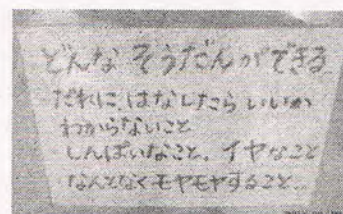 どんな そうだんができる
だれに はなしたら いいか
わからないこと
しんぱいなこと。イヤなこと
なんとなくモヤモヤすること。